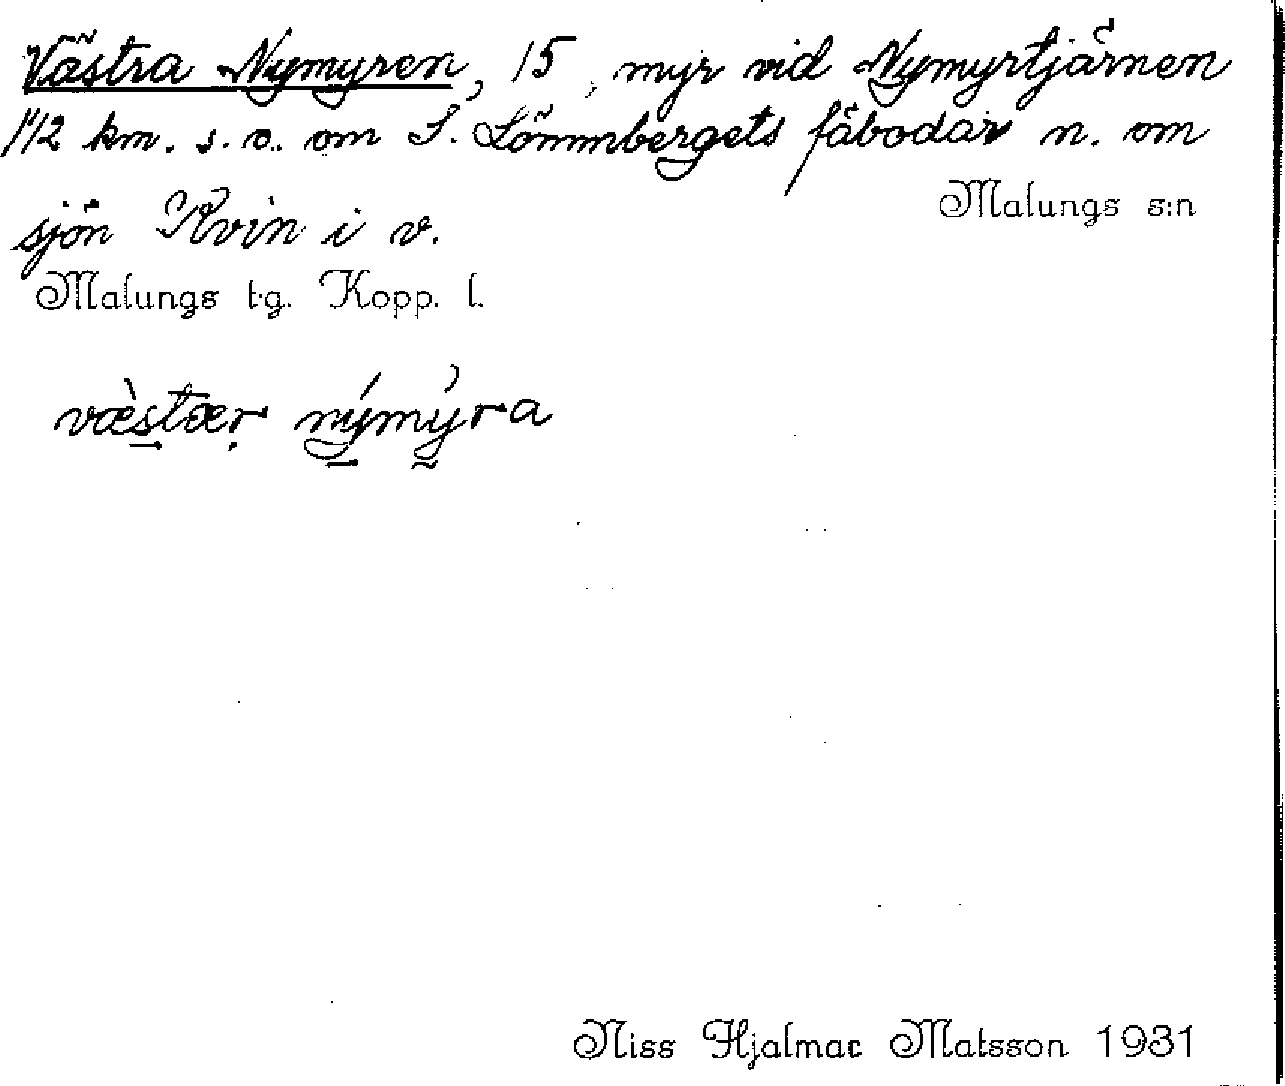 Västra Nymyren, 15, myr vid Nymyrtjärnen
1/2 km. s. o. om S. Lömmbergets fäbodar n. om
Malungs s:n
sjön Kvin i v.
Malungs t.g. Kopp. l.
væ̀stær nýmýra
Niss Hjalmar Matsson 1931